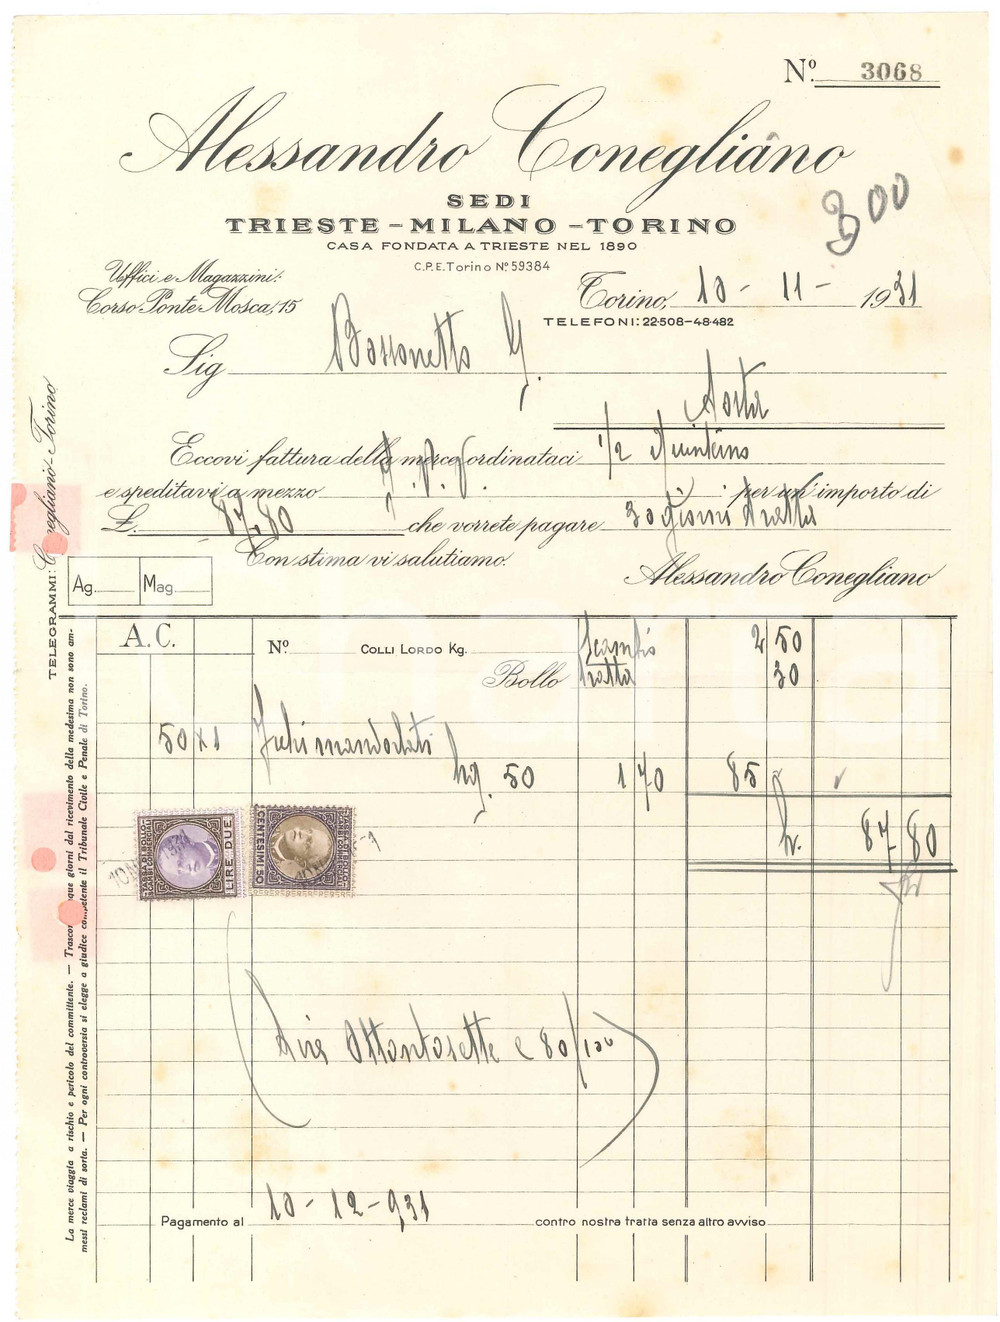 Nº 3068
Alessandro Conegliano
SEDI
TRIESTE - MILANO - TORINO
CASA FONDATA A TRIESTE NEL 1890
C.P.E. Torino Nº 59384
300
Uffici e Magazzini:
Corso Ponte Mosca, 15
Torino, 10 - 11 - 1931
TELEFONI: 22-508-48-482
Sig Bossonetto G.
Aosta
Eccovi fattura della merce ordinataci 1/2 Quintino
e speditavi a mezzo per un' importo di
£. 87.80 che vorrete pagare 30 giorni tratta
Con stima vi salutiamo.
Alessandro Conegliano
Ag. Mag.
TELEGRAMMI: Conegliano-Torino
A. C. Nº COLLI LORDO KG. Scambio 2 50
Bollo tratta 30
50 x 1 Fichi mandorlati
Kg. 50 1 70 85
87 80
TASSA DI BOLLO SCAMBI COMMERCIALI
LIRE DUE
CENTESIMI 50
(Lire Ottantasette e 80/100)
Pagamento al 10 - 12 - 931 contro nostra tratta senza altro avviso
La merce viaggia a rischio e pericolo del committente. — Trascorsi que giorni dal ricevimento della medesima non sono am-
messi reclami di sorta. — Per ogni controversia si elegge a giudice competente il Tribunale Civile e Penale di Torino.